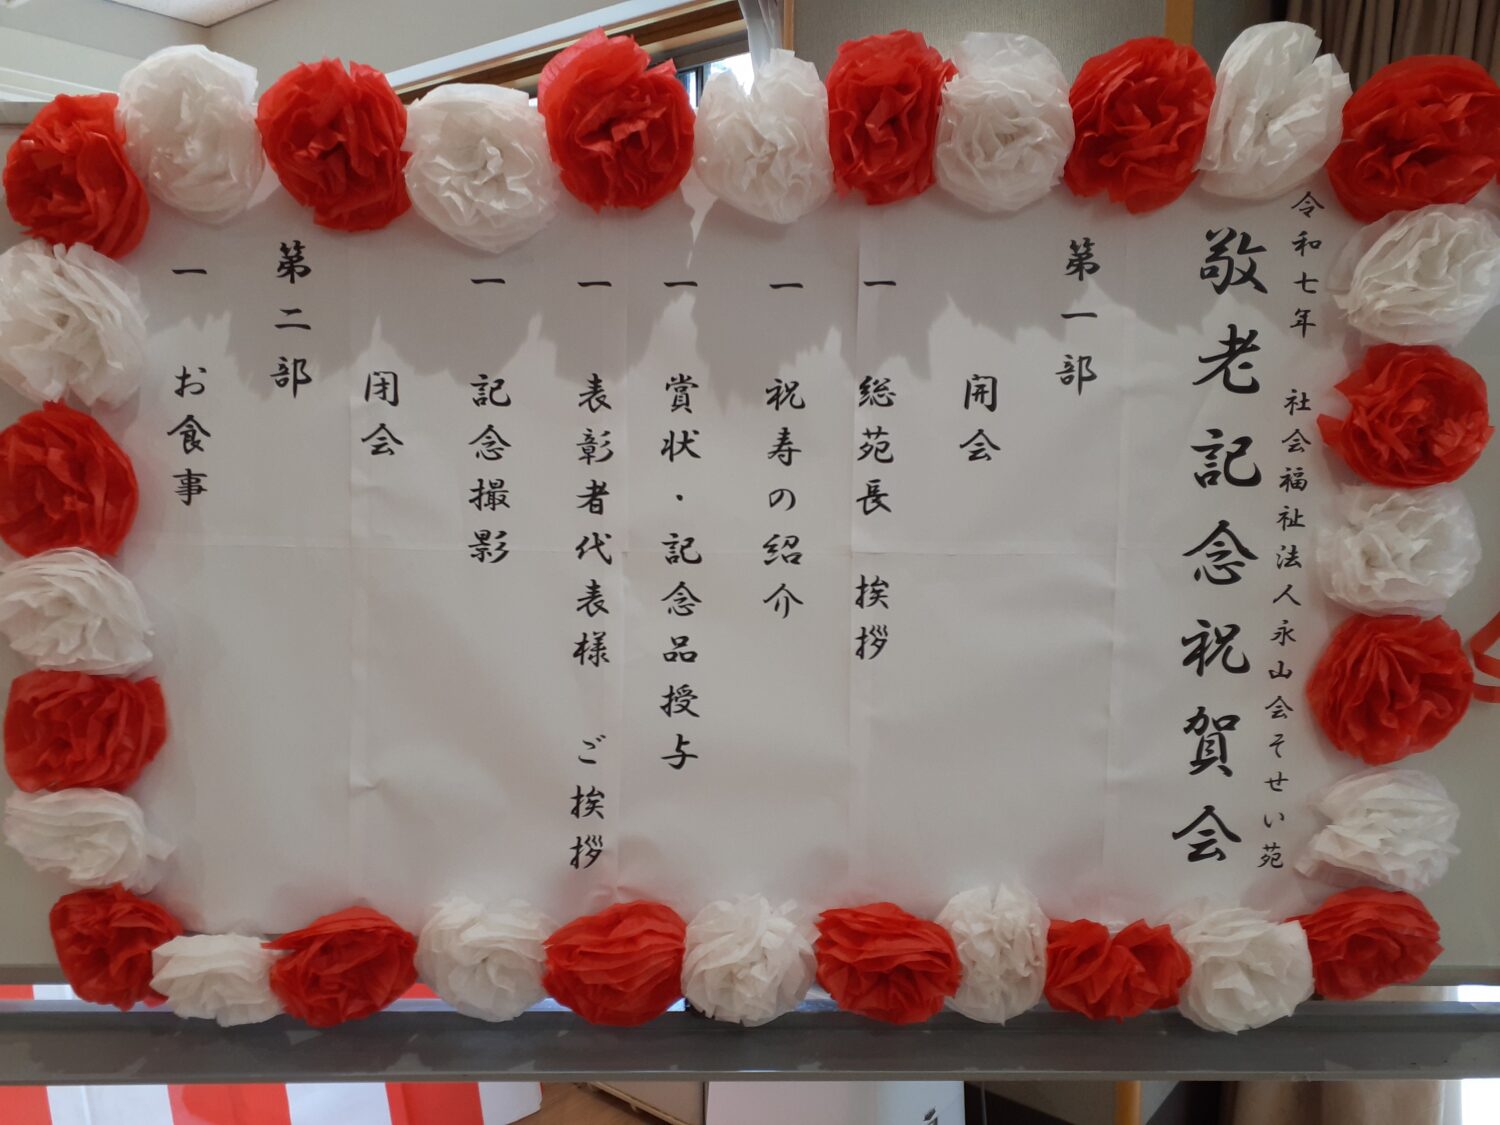 令和七年 社会福祉法人永山会そせい苑
敬老記念祝賀会
第一部
開会
一 総苑長 挨拶
一 祝寿の紹介
一 賞状・記念品授与
一 表彰者代表様 ご挨拶
一 記念撮影
閉会
第二部
一 お食事